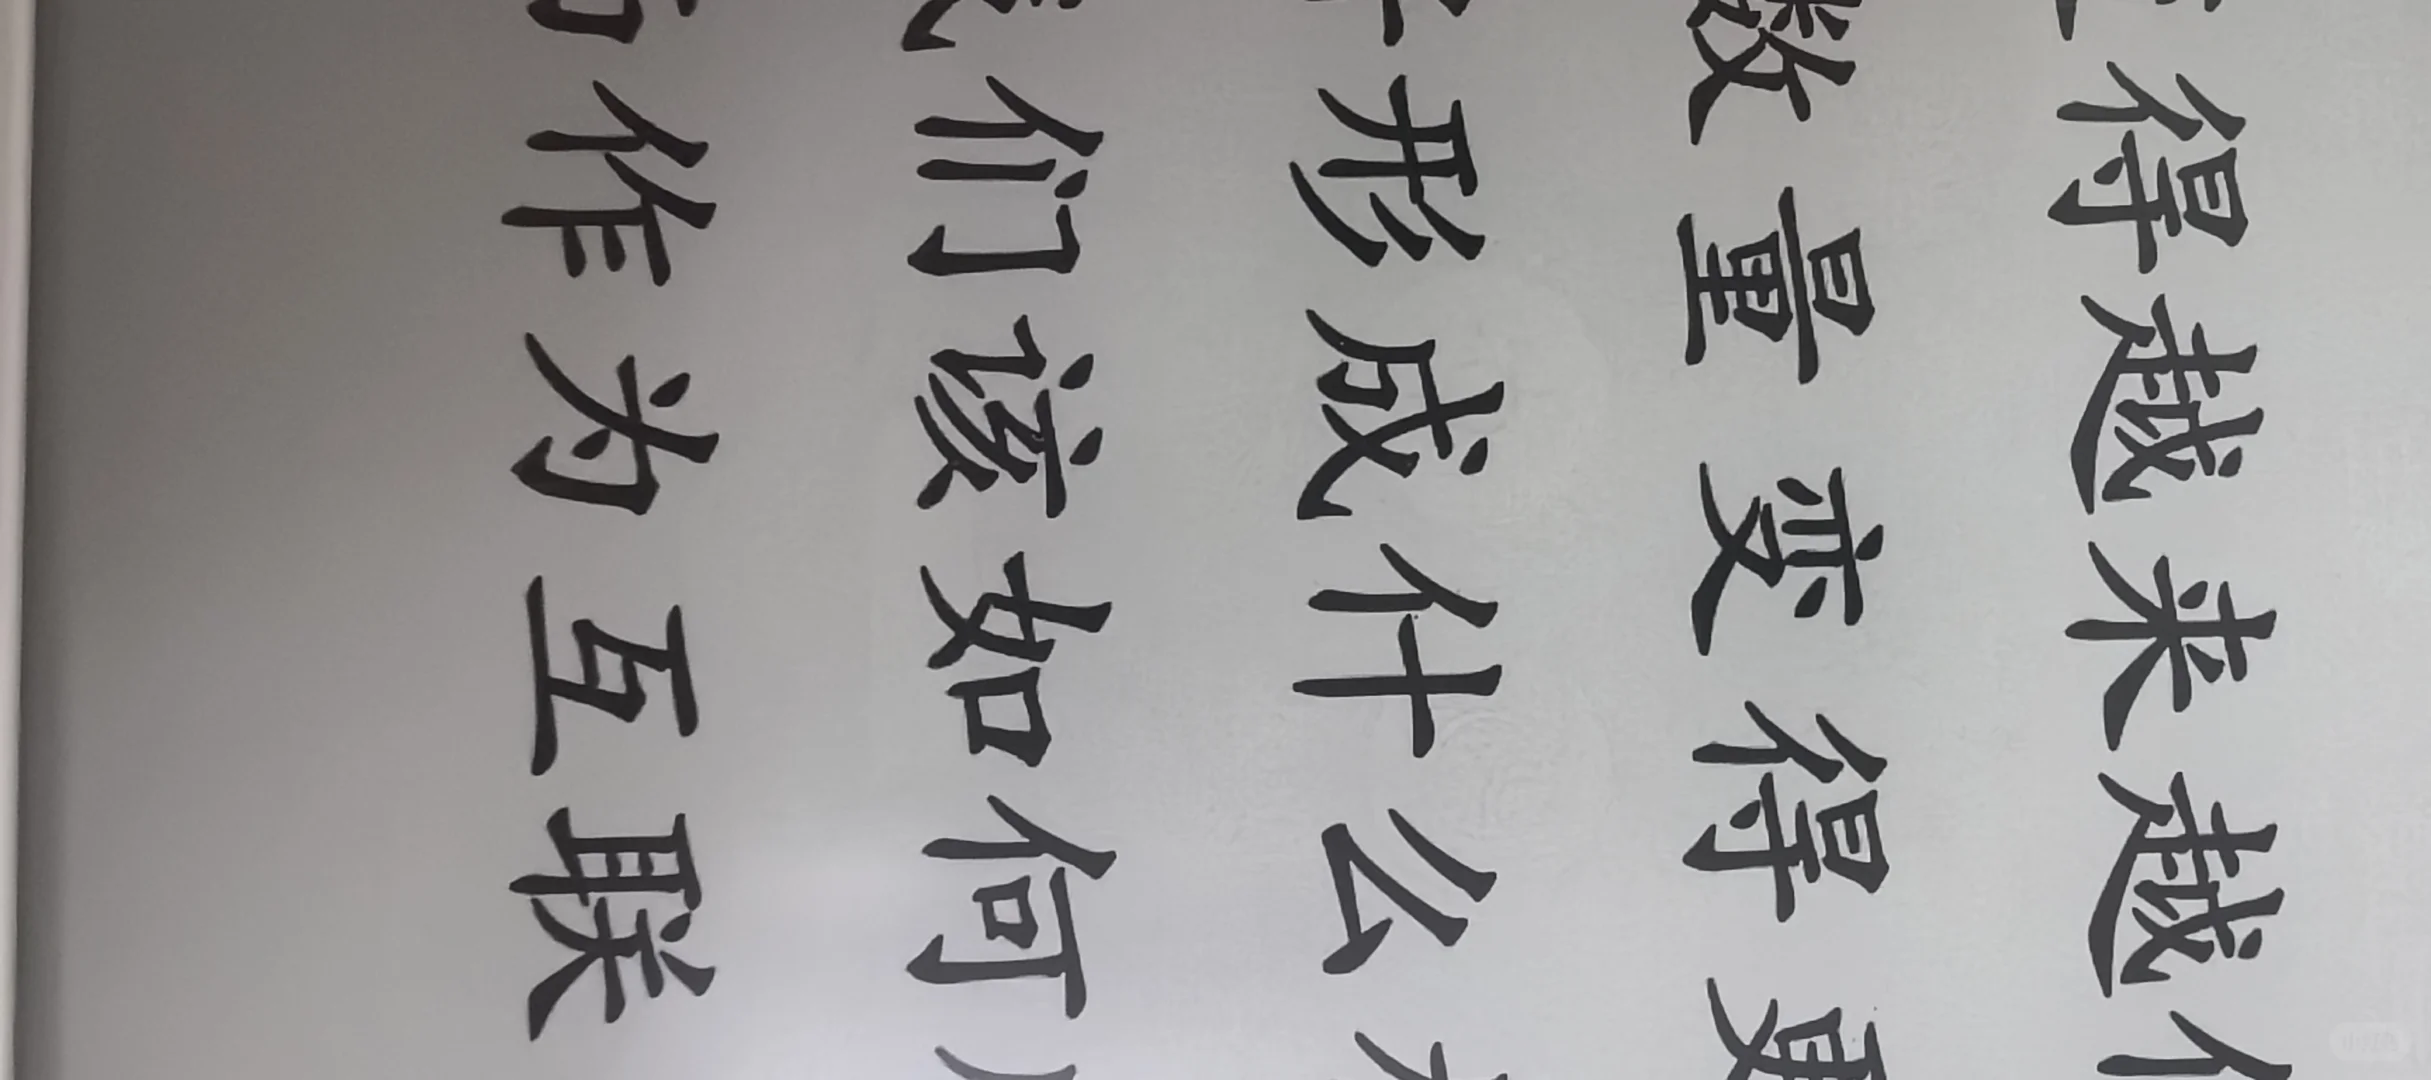 得越来越
数量变得更
形成什么
们该如何
作为互联